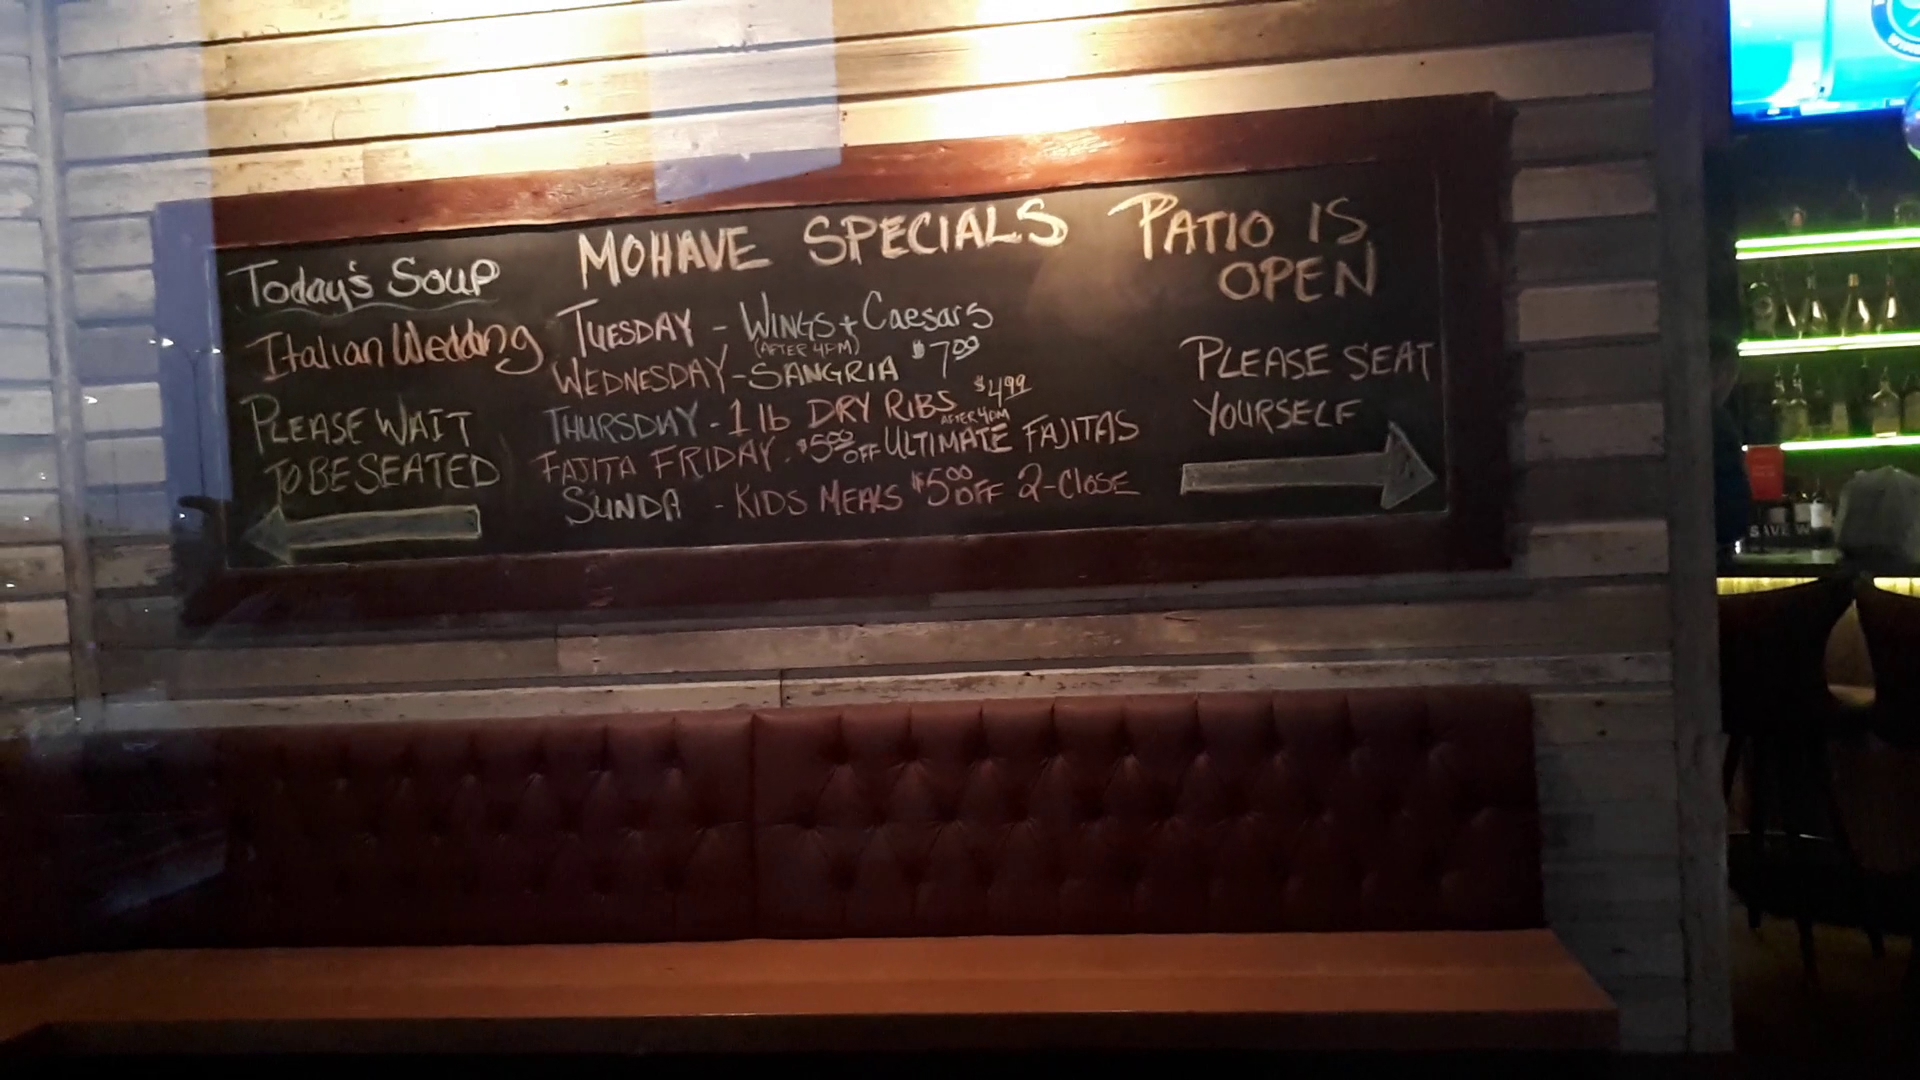 Today's Soup
Italian Wedding
PLEASE WAIT
TO BE SEATED
MOHAVE SPECIALS
TUESDAY - WINGS + Caesars
(AFTER 4PM)
WEDNESDAY - SANGRIA $7.00
THURSDAY - 1 lb DRY RIBS $4.99
AFTER 4PM
FAJITA FRIDAY - $5.00 OFF ULTIMATE FAJITAS
SUNDA - KIDS MEALS $5.00 OFF 2-Close
PATIO IS
OPEN
PLEASE SEAT
YOURSELF
SAVE W